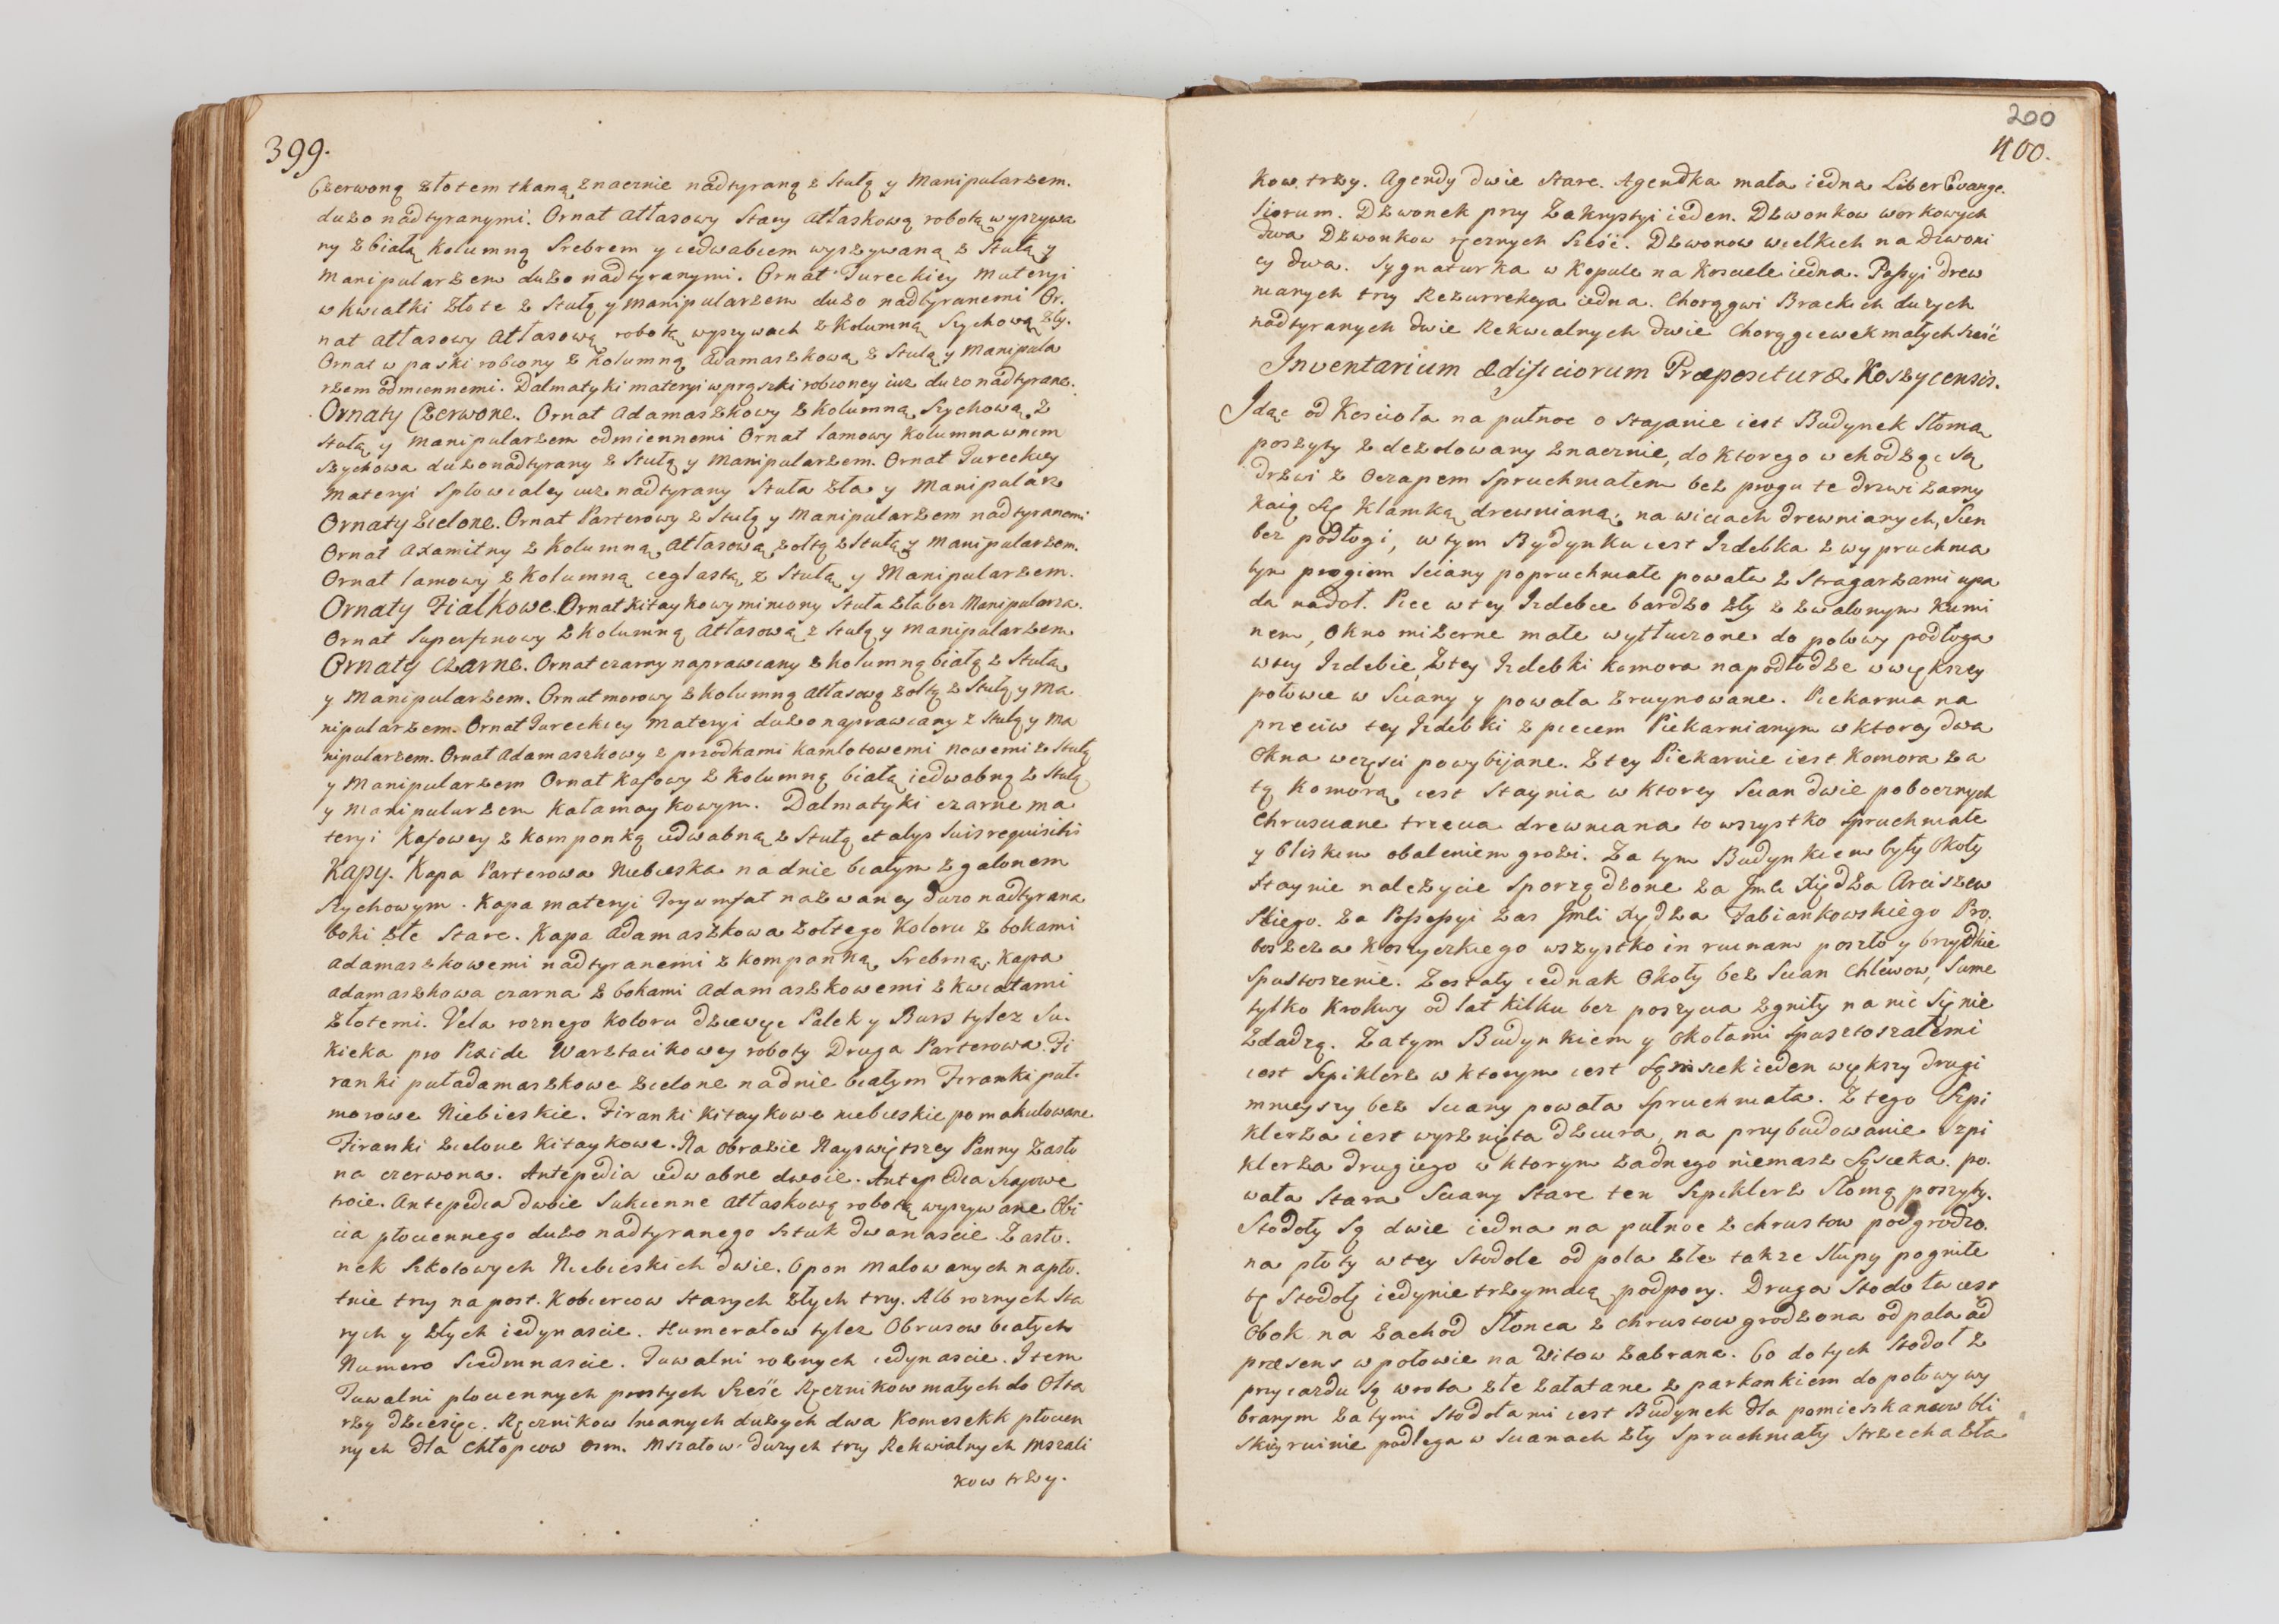 399.
Czerwoną złotem tkaną znacznie nadtyraną z Stułą y Manipularzem.
dużo nadtyranymi. Ornat Atłasowy Stary Atłaskową robotą wyszywa
ny z białą Kolumną Srebrem y iedwabiem wyszywaną z Stułą y
Manipularzem dużo nadtyranymi. Ornat Tureckiey Materyi
w kwiatki złote z Stułą y Manipularzem dużo nadtyranemi Or.
nat Atłasowy Atłasową robotą wyszywach z Kolumną Szychową zły.
Ornat w paski robiony z Kolumną Adamaszkową z Stułą y Manipula
rzem odmiennemi. Dalmatyki materyi w prązki robioney iuz duzo nadtyrane.
Ornaty Czerwone. Ornat Adamaszkowy z Kolumną Szychową z
Stułą y Manipularzem odmiennemi Ornat lamowy Kolumna w nim
Szychowa dużo nadtyrany z Stułą y Manipularzem. Ornat Tureckiey
Materyi Spłowiałey iuz nadtyrany Stuła zła y Manipularz
Ornaty zielone. Ornat Parterowy z Stułą y Manipularzem nadtyranemi
Ornat Axamitny z Kolumną Atłasową zołtą z Stułą y Manipularzem.
Ornat lamowy z Kolumną ceglastą z Stułą y Manipularzem.
Ornaty Fiałkowe. Ornat Kitaykowy mieniony Stuła zła bez Manipularza.
Ornat Superfinowy z Kolumną Atłasową z Stułą y Manipularzem
Ornaty czarne. Ornat czarny naprawiany z kolumną białą z Stułą
y Manipularzem. Ornat morowy z kolumną Atłasową zołtą z Stułą y Ma
nipularzem. Ornat Tureckiey Materyi dużo naprawiany z Stułą y Ma
nipularzem. Ornat Adamaszkowy z przodkami kamlotowemi nowemi z Stułą
y Manipularzem Ornat Kafowy z Kolumną białą iedwabną z Stułą
y Manipularzem Kałamaykowym. Dalmatyki czarne ma
teryi Kafowey z komponką iedwabną z Stułą et alys suis requisitis
Kapy. Kapa Parterowa Niebieska na dnie białym z galonem
Szychowym. Kapa materyi Tryumfat nazwaney duzo nadtyrana
boki złe Stare. Kapa Adamaszkowa zołtego Koloru z bokami
Adamaszkowemi nadtyranemi z komponką Srebrną. Kapa
Adamaszkowa czarna z bokami Adamaszkowemi z kwiatami
złotemi. Vela roznego koloru dziewięc Palek y Burs tylez Su.
kieka pro Pixide Warztacikowey roboty Druga Parterowa. Fi
ranki puładamaszkowe zielone na dnie białym Firanki puł.
morowe Niebieskie. Firanki Kitaykowe niebieskie pomakulowane
Firanki zielone Kitaykowe. Na obrazie Nayswiętszey Panny Zasło
na czerwona. Antepedia iedwabne dwoie. Antepedia Szajowe
troie. Antepedia dwoie Sukienne Atłaskową robotą wyszywane Obi
cia płociennego dużo nadtyranego sztuk dwanascie Zasło.
nek Szkotowych Niebieskich dwie. Opon malowanych na pło.
tnie trzy na post. Kobiercow Starych złych trzy. Alb roznych Sta
rych y złych iedynascie. Humerałow tylez Obrusow białych
Numero Siedmnascie. Tuwalni roznych iedynascie. Item
Tuwalni płociennych prostych Sześć Ręcznikow małych do Ołta
rzy dziesięc. Ręcznikow lnianych dużych dwa Komeżekk płocien
nych dla Chłopcow osm. Mszałow duzych trzy Rekwialnych Mszali
kow trzy.
200
400.
kow trzy. Agendy dwie Stare. Agendka mała iedna Liber Evange.
liorum. Dzwonek przy Zakrystyi ieden. Dzwonkow workowych
dwa Dzwonkow ręcznych Sześć. Dzwonow wielkich na dzwoni
cy dwa. Sygnaturka w Kopule na Kosciele iedna. Passyi drew
nianych trzy Rezurrekcya iedna. Chorągwi Brackich dużych
nadtyranych dwie Rekwialnych dwie Chorągiewek małych sześć
Inventarium ædificiorum Præpositura Koszycensis.
Idąc od Kosciola na pułnoc o Stajanie iest Budynek Słomą
poszyty zdezolowany znacznie, do ktorego wchodząc Są
drzwi z Oczapem Spruchniałem bez progu te drzwi zamy
kaią się Klamką drewnianą, na wiciach drewnianych, Sien
bez podłogi, w tym Bydynku iest Izdebka z wypruchnia
łym progiem Sciany popruchniałe powała z Stragarzami upa
da nadoł. Piec w tey Izdebce bardzo zły z zwalonym Kumi
nem, Okno mizerne małe wytłuczone do połowy podłoga
w tey Izdebie, Z tey Izdebki komora na podłodze w większey
połowie w Sciany y powała zruynowane. Piekarnia na
przeciw tey Izdebki z piecem Piekarnianym w ktorey dwa
Okna wczęsci powybijane. Z tey Piekarnie iest Komora za
tą Komorą iest Staynia w ktorey Scian dwie pobocznych
Chrusciane trzecia drewniana to wszystko Spruchniałe
y bliskim obaleniem grozi. Za tym Budynkiem były Okoły
Staynie należycie Sporządzone za Jmci Xiędza Arciszew
skiego. Za Possessyi zas Jmci Xiędza Fabiankowskiego Pro.
boszcza Koszyczkiego wszystko in ruinam poszło y brzydkie
Spustoszenie. Zostały iednak Okoły bez Scian Chlewow, Same
tylko Krokwy od lat kilku bez poszycia zgniły na nic się nie
zdadzą. Za tym Budynkiem y Okołami Spusztoszałemi
iest Szpiklerz w ktorym iest Sąmszek ieden większy drugi
mnieyszy bez Sciany powała Spruchniała. Z tego Szpi
klerza iest wyrznięta dziura, na przybudowanie Szpi
klerza drugiego w ktorym zadnego niemasz Sąsieka. po.
wała Stara Sciany Stare ten Szpiklerz Słomą poszyty.
Stodoły Są dwie iedna na pułnoc z chrustow podgrodzo.
na płoty w tey Stodole od pola złe takze Słupy pogniłe
tę Stodołę iedynie trzymaią podpory. Druga Stodoła iest
Obok na zachod Słonca z chrustow grodzona od pola ad
præsens w połowie na Witow zabrana. Co do tych Stodoł z
przyiazdu Są wrota złe załatane z parkonkiem do połowy wy
branym za tymi Stodołami iest Budynek dla pomieszkancow bli
skiey ruinie podlega w Scianach zły Spruchniały Strzecha zła